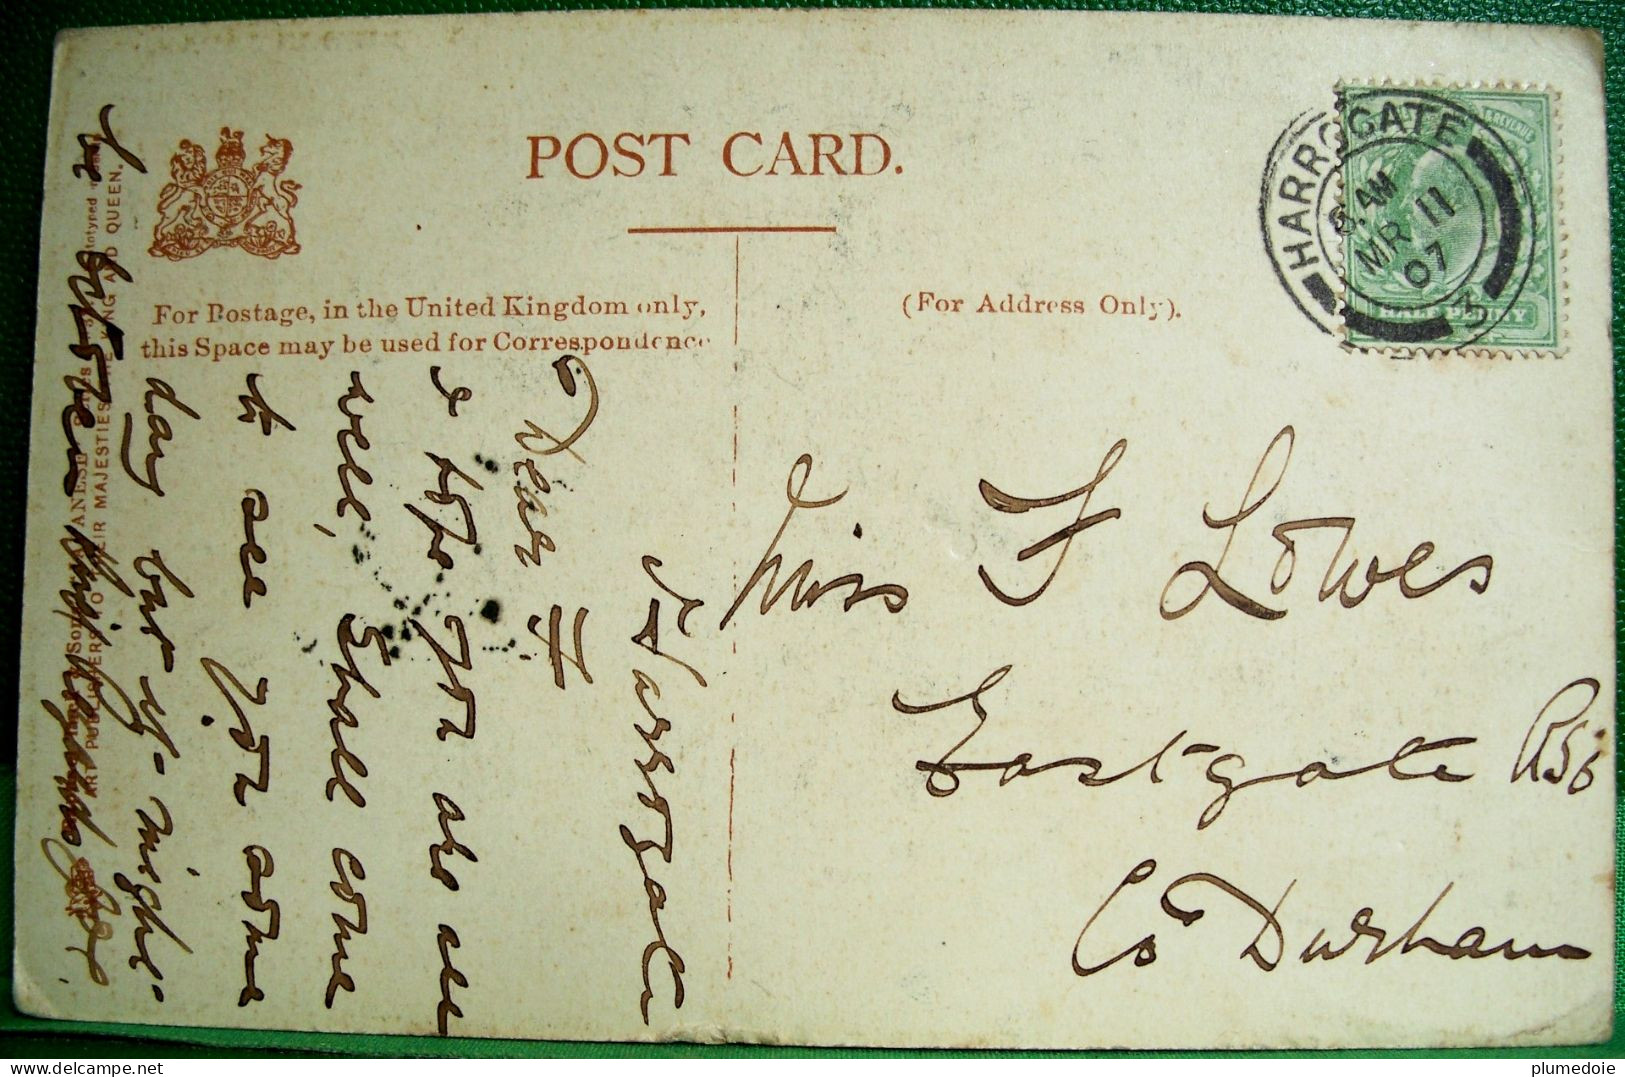 POST CARD.
For Postage, in the United Kingdom only,
this Space may be used for Correspondence
(For Address Only).
HARROGATE
8. AM
MR 11
07
3
& REVENUE
HALF PENNY
Harrogate
Dear F
I hope you are all
well, Shall come
to see you some
day but it might
be
Miss F Lowes
Eastgate RSO
Co Durham
ART PUBLISHERS TO THEIR MAJESTIES THE KING AND QUEEN.
plumedoie